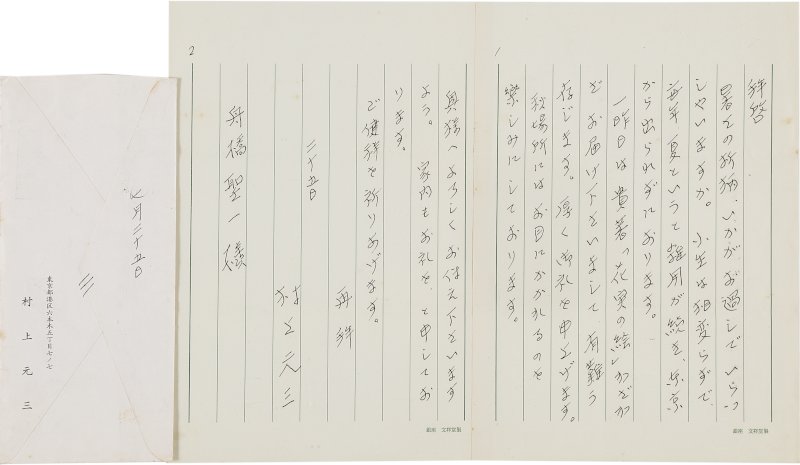 1
拝啓
暑さの折柄、いかがお過しでいらっ
しゃいますか。小生は相変らずで、
毎年夏というと雑用が続き、東京
から出られずにおります。
一昨日は貴著「花実の絵」かざか
をお届け下さいまして有難う
存じます。厚く御礼を申上げます。
秋場所にはお目にかかれるのを
楽しみにしております。
銀座 文祥堂製
2
奥様へよろしくお伝え下さいます
よう。家内もお礼を、と申してお
ります。
ご健祥を祈りあげます。
再拝
二十五日
村上元三
舟橋聖一様
銀座 文祥堂製
七月二十五日
東京都港区六本木五丁目七ノ七
村上元三